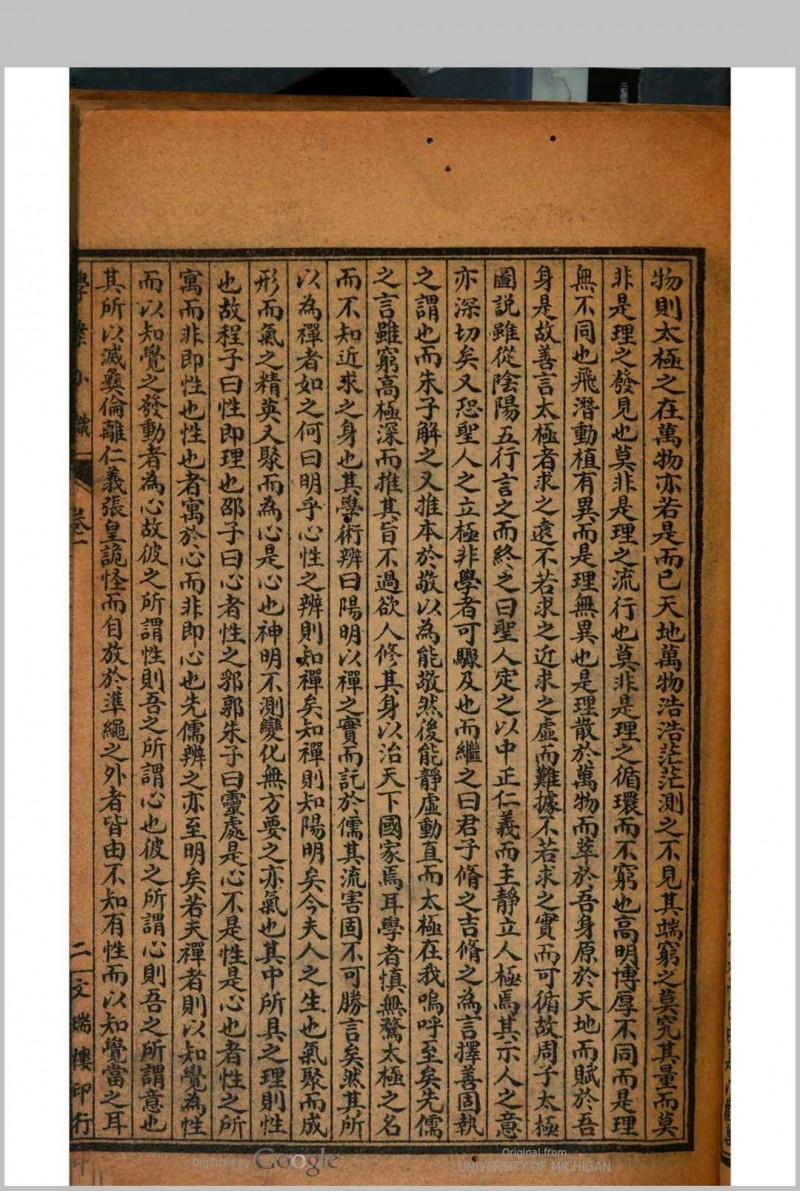 物則太極之在萬物亦若是而已天地萬物浩浩茫茫測之不見其端窮之莫究其量而莫
非是理之發見也莫非是理之流行也莫非是理之循環而不窮也高明博厚不同而是理
無不同也飛潛動植有異而是理無異也是理散於萬物而萃於吾身原於天地而賦於吾
身是故善言太極者求之遠不若求之近求之虛而難據不若求之實而可循故周子太極
圖說雖從陰陽五行言之而終之曰聖人定之以中正仁義而主靜立人極焉其示人之意
亦深切矣又恐聖人之立極非學者可驟及也而繼之曰君子脩之吉脩之為言擇善固執
之謂也而朱子解之又推本於敬以為能敬然後能靜虛動直而太極在我嗚呼至矣先儒
之言雖窮高極深而推其旨不過欲人修其身以治天下國家焉耳學者慎無騖太極之名
而不知近求之身也其學術辨曰陽明以禪之實而託於儒其流害固不可勝言矣然其所
以為禪者如之何曰明乎心性之辨則知禪矣知禪則知陽明矣今夫人之生也氣聚而成
形而氣之精英又聚而為心是心也神明不測變化無方要之亦氣也其中所具之理則性
也故程子曰性即理也邵子曰心者性之郛郭朱子曰靈處是心不是性是心也者性之所
寓而非即性也性也者寓於心而非即心也先儒辨之亦至明矣若夫禪者則以知覺為性
而以知覺之發動者為心故彼之所謂性則吾之所謂心也彼之所謂心則吾之所謂意也
其所以滅彝倫離仁義張皇詭怪而自放於準繩之外者皆由不知有性而以知覺當之耳
學案小識 卷一 二 文瑞樓印行
Digitized by Google
Original from
UNIVERSITY OF MICHIGAN